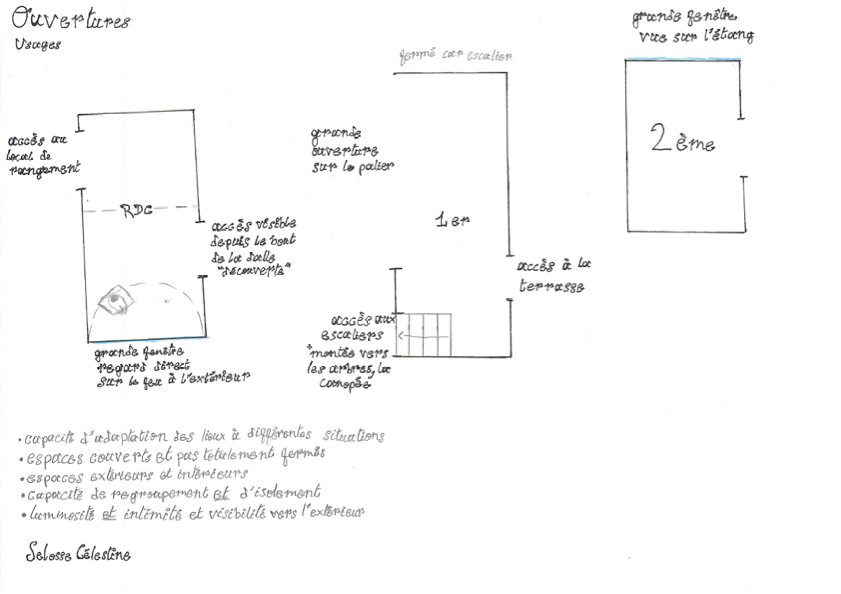 Ouvertures
Usages
accès au
local de
rangement
RDC
accès visible
depuis le bout
de la salle
"découverte"
grande fenêtre
regard direct
sur le feu à l'extérieur
fermé car escalier
grande
ouverture
sur le palier
1er
accès à la
terrasse
accès aux
escaliers
"montée vers
les arbres, la
canopée
grande fenêtre
vue sur l'étang
2ème
• capacité d'adaptation des lieux à différentes situations
• espaces couverts et pas totalement fermés
• espaces extérieurs et intérieurs
• capacité de regroupement et d'isolement
• luminosité et intimité et visibilité vers l'extérieur
Selosse Célestine